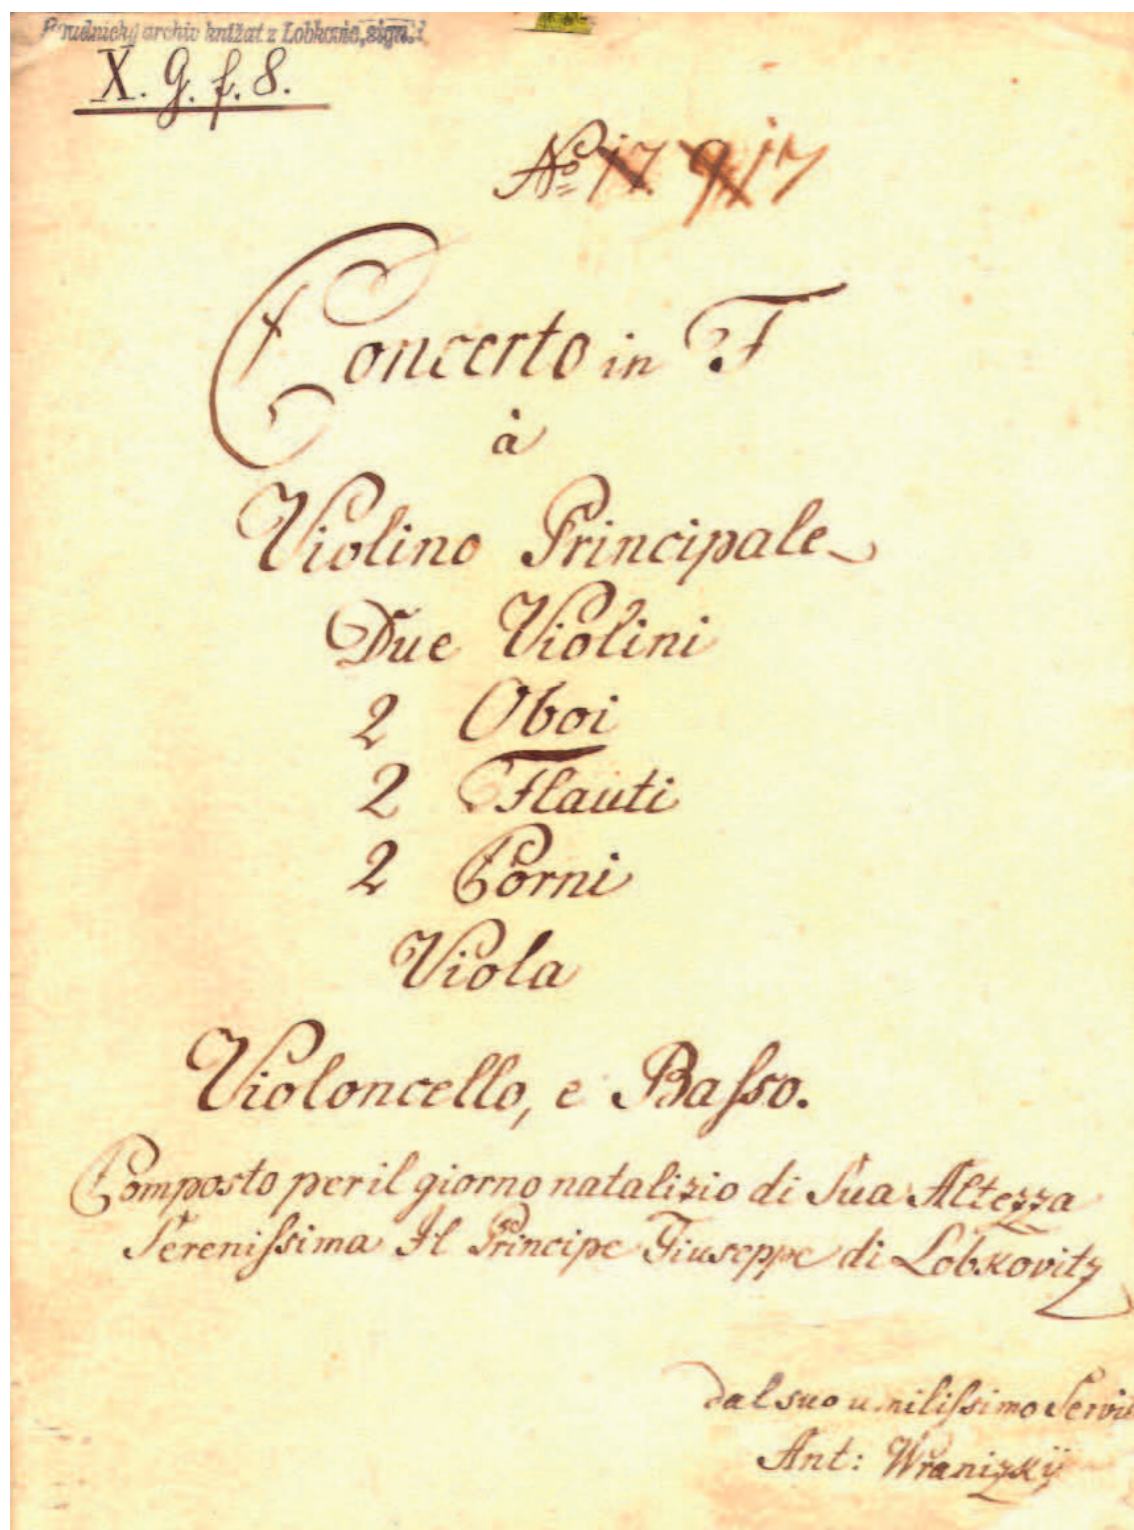 Roudnický archiv knížat z Lobkovic, sign.
X. G. f. 8.
No 17. 9 17
Concerto in F
à
Violino Principale
Due Violini
2 Oboi
2 Flauti
2 Corni
Viola
Violoncello, e Baſso.
Composto per il giorno natalizio di Sua Altezza
Sereniſsima Il Principe Giuseppe di Lobkovitz
dal suo umiliſsimo Servi
Ant: Wranizkÿ